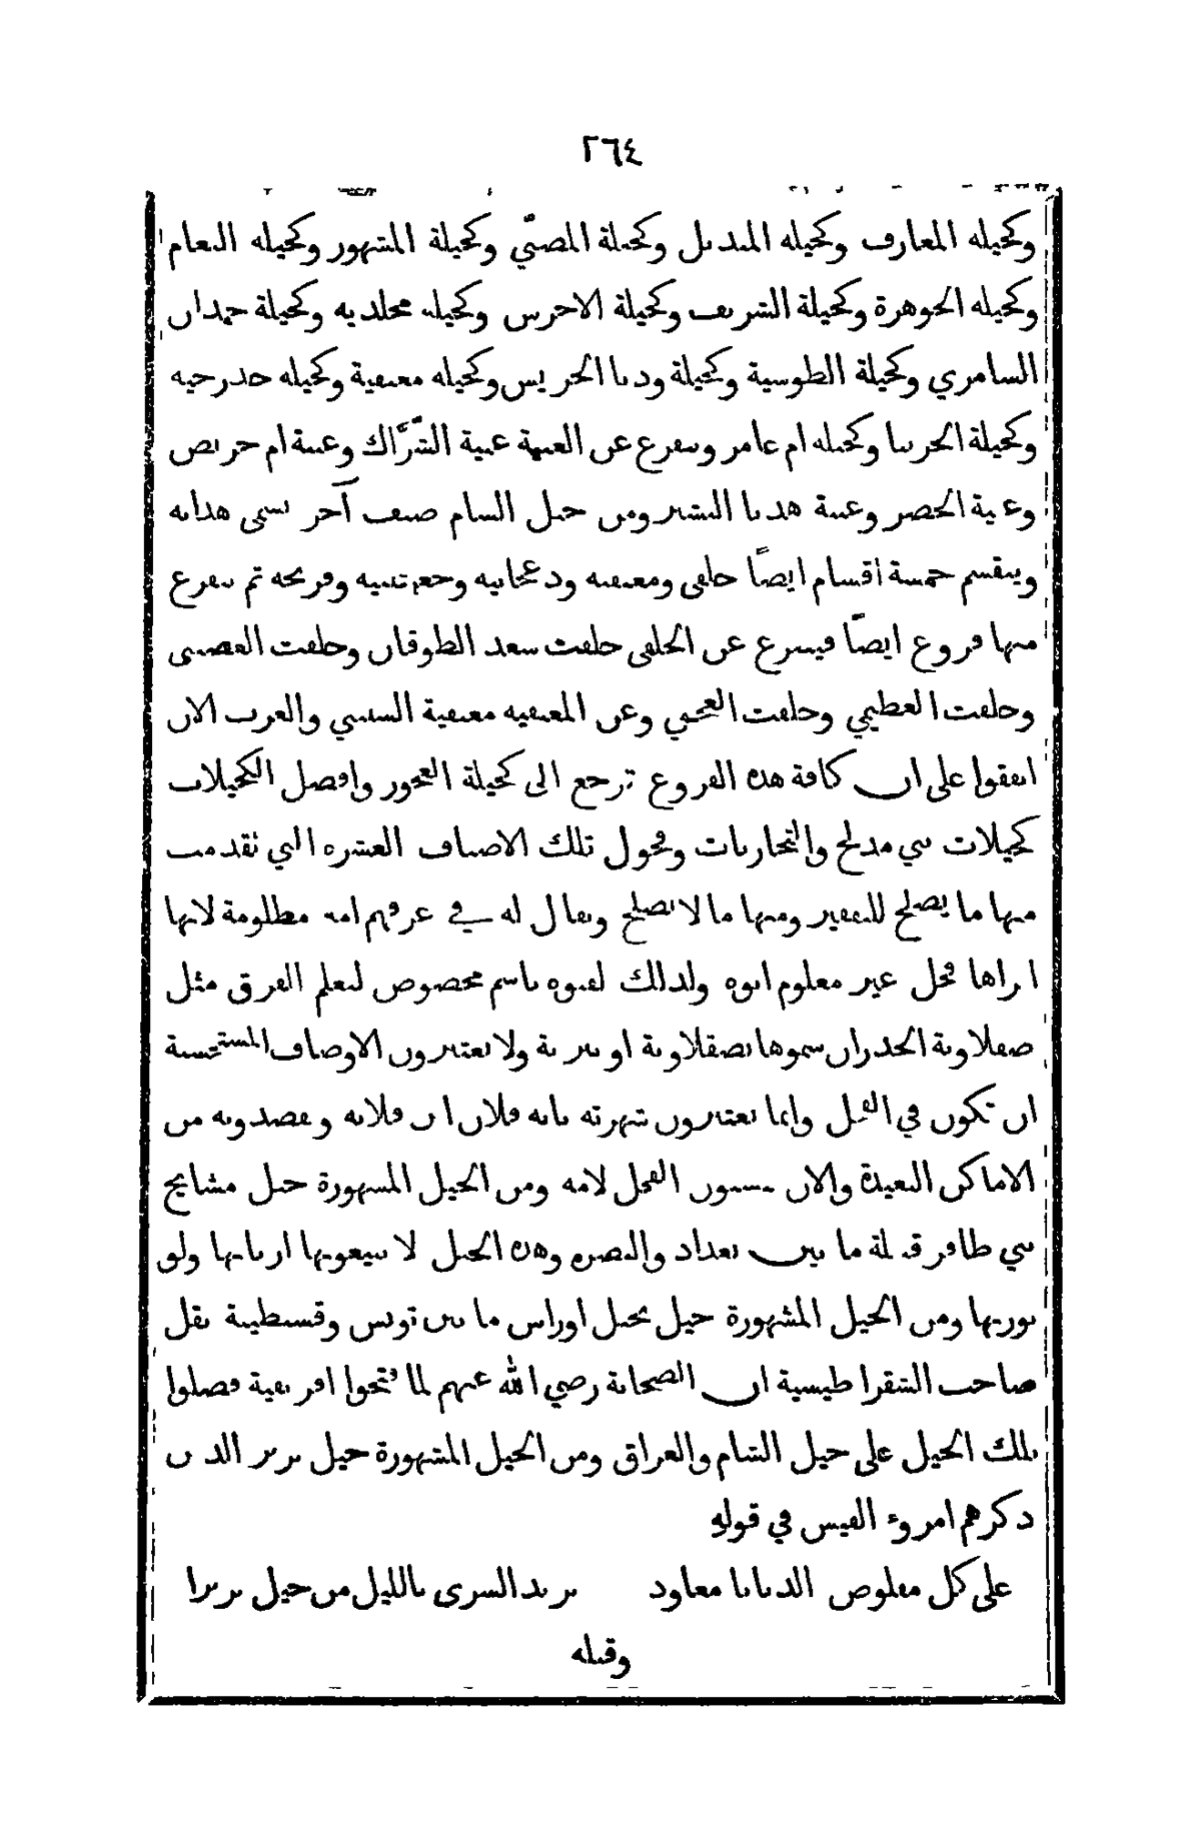 ٢٦٤
وكحيلة المعارف وكحيلة المنديل وكحيلة المصنّي وكحيلة المشهور وكحيلة النعام
وكحيلة الجوهرة وكحيلة الشريف وكحيلة الاخرس وكحيلة مخلدية وكحيلة حمدان
السامري وكحيلة الطوسية وكحيلة ودنا الخريس وكحيلة معنقية وكحيلة
وكحيلة الخرسا وكحيلة ام عامر ويتفرع عن العبية عبية الشّرَّاك وعبية ام جريص
وعبية الخضر وعبية هدبا البشير ومن خيل الشام صنف آخر يسمى هدابه
وينقسم خمسة اقسام ايضًا جلفي ومعنقيه ودعجانيه وجعيتنيه وفريحه ثم يتفرع
منها فروع ايضًا فيتفرع عن الجلفى جلفت سعد الطوقان وجلفت القصيبى
وجلفت العطيبي وجلفت العجمي وعن المعنقيه معنقية السبيني والعرب الآن
اتفقوا على ان كافة هذه الفروع ترجع الى كحيلة العجوز وافضل الكحيلات
كحيلات بني مدلج والبخاريات وفحول تلك الاصناف العشره التي تقدمت
منها ما يصلح للتقفيز ومنها ما لا يصلح ويقال له في عرفهم امه مظلومة لانها
اراها فحل غير معلوم ابوه ولذلك لقبوه باسم مخصوص ليعلم الفرق مثل
صقلاوية الجدران سموها بصقلاوية اوبيرية ولا يعتبرون الاوصاف المستحسنة
ان تكون في الفحل وانما يعتبرون شهرته بانه فلان ابن فلانه ويقصدونه من
الاماكن البعيدة والآن ينسبون الفحل لامه ومن الخيل المشهورة خيل مشايخ
بني ظافر قبيلة ما بين بغداد والبصره وهذه الخيل لا يبيعونها اربابها ولو
بوزنها ومن الخيل المشهورة خيل بجبل اوراس ما بين تونس وقسطنطينة نقل
صاحب الشقراطيسية ان الصحابة رضي الله عنهم لما فتحوا افريقية فضلوا
تلك الخيل على خيل الشام والعراق ومن الخيل المشهورة خيل بربر الذين
ذكرهم امروء القيس في قوله
على كل مقصوص الذنابا معاود بريد السرى بالليل من خيل بربرا
وقبله